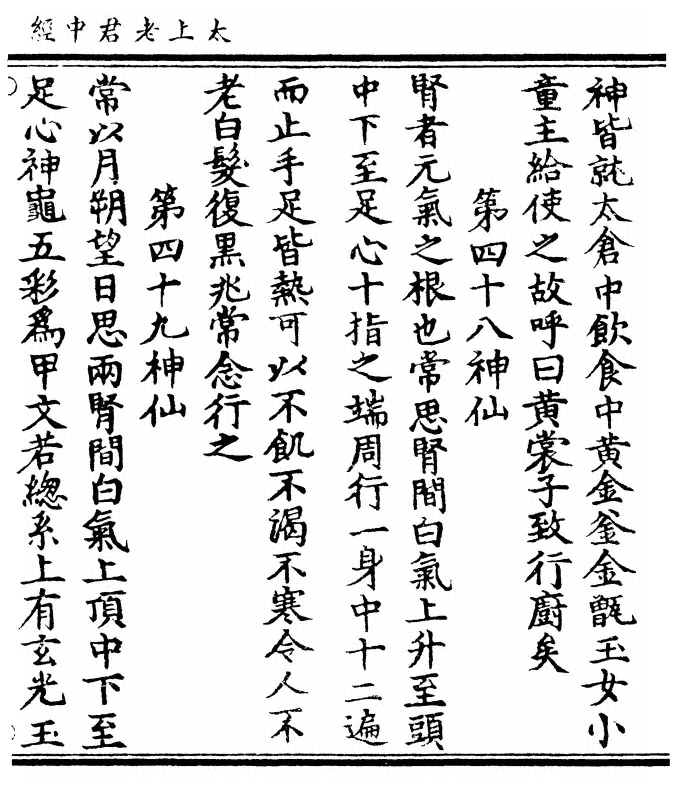 太上老君中經
神皆就太倉中飲食中黃金釜金甑玉女小
童主給使之故呼曰黃裳子致行廚矣
第四十八神仙
腎者元氣之根也常思腎間白氣上升至頭
中下至足心十指之端周行一身中十二遍
而止手足皆熱可以不飢不渴不寒令人不
老白髮復黑兆常念行之
第四十九神仙
常以月朔望日思兩腎間白氣上頂中下至
足心神龜五彩爲甲文若緫系上有玄光玉